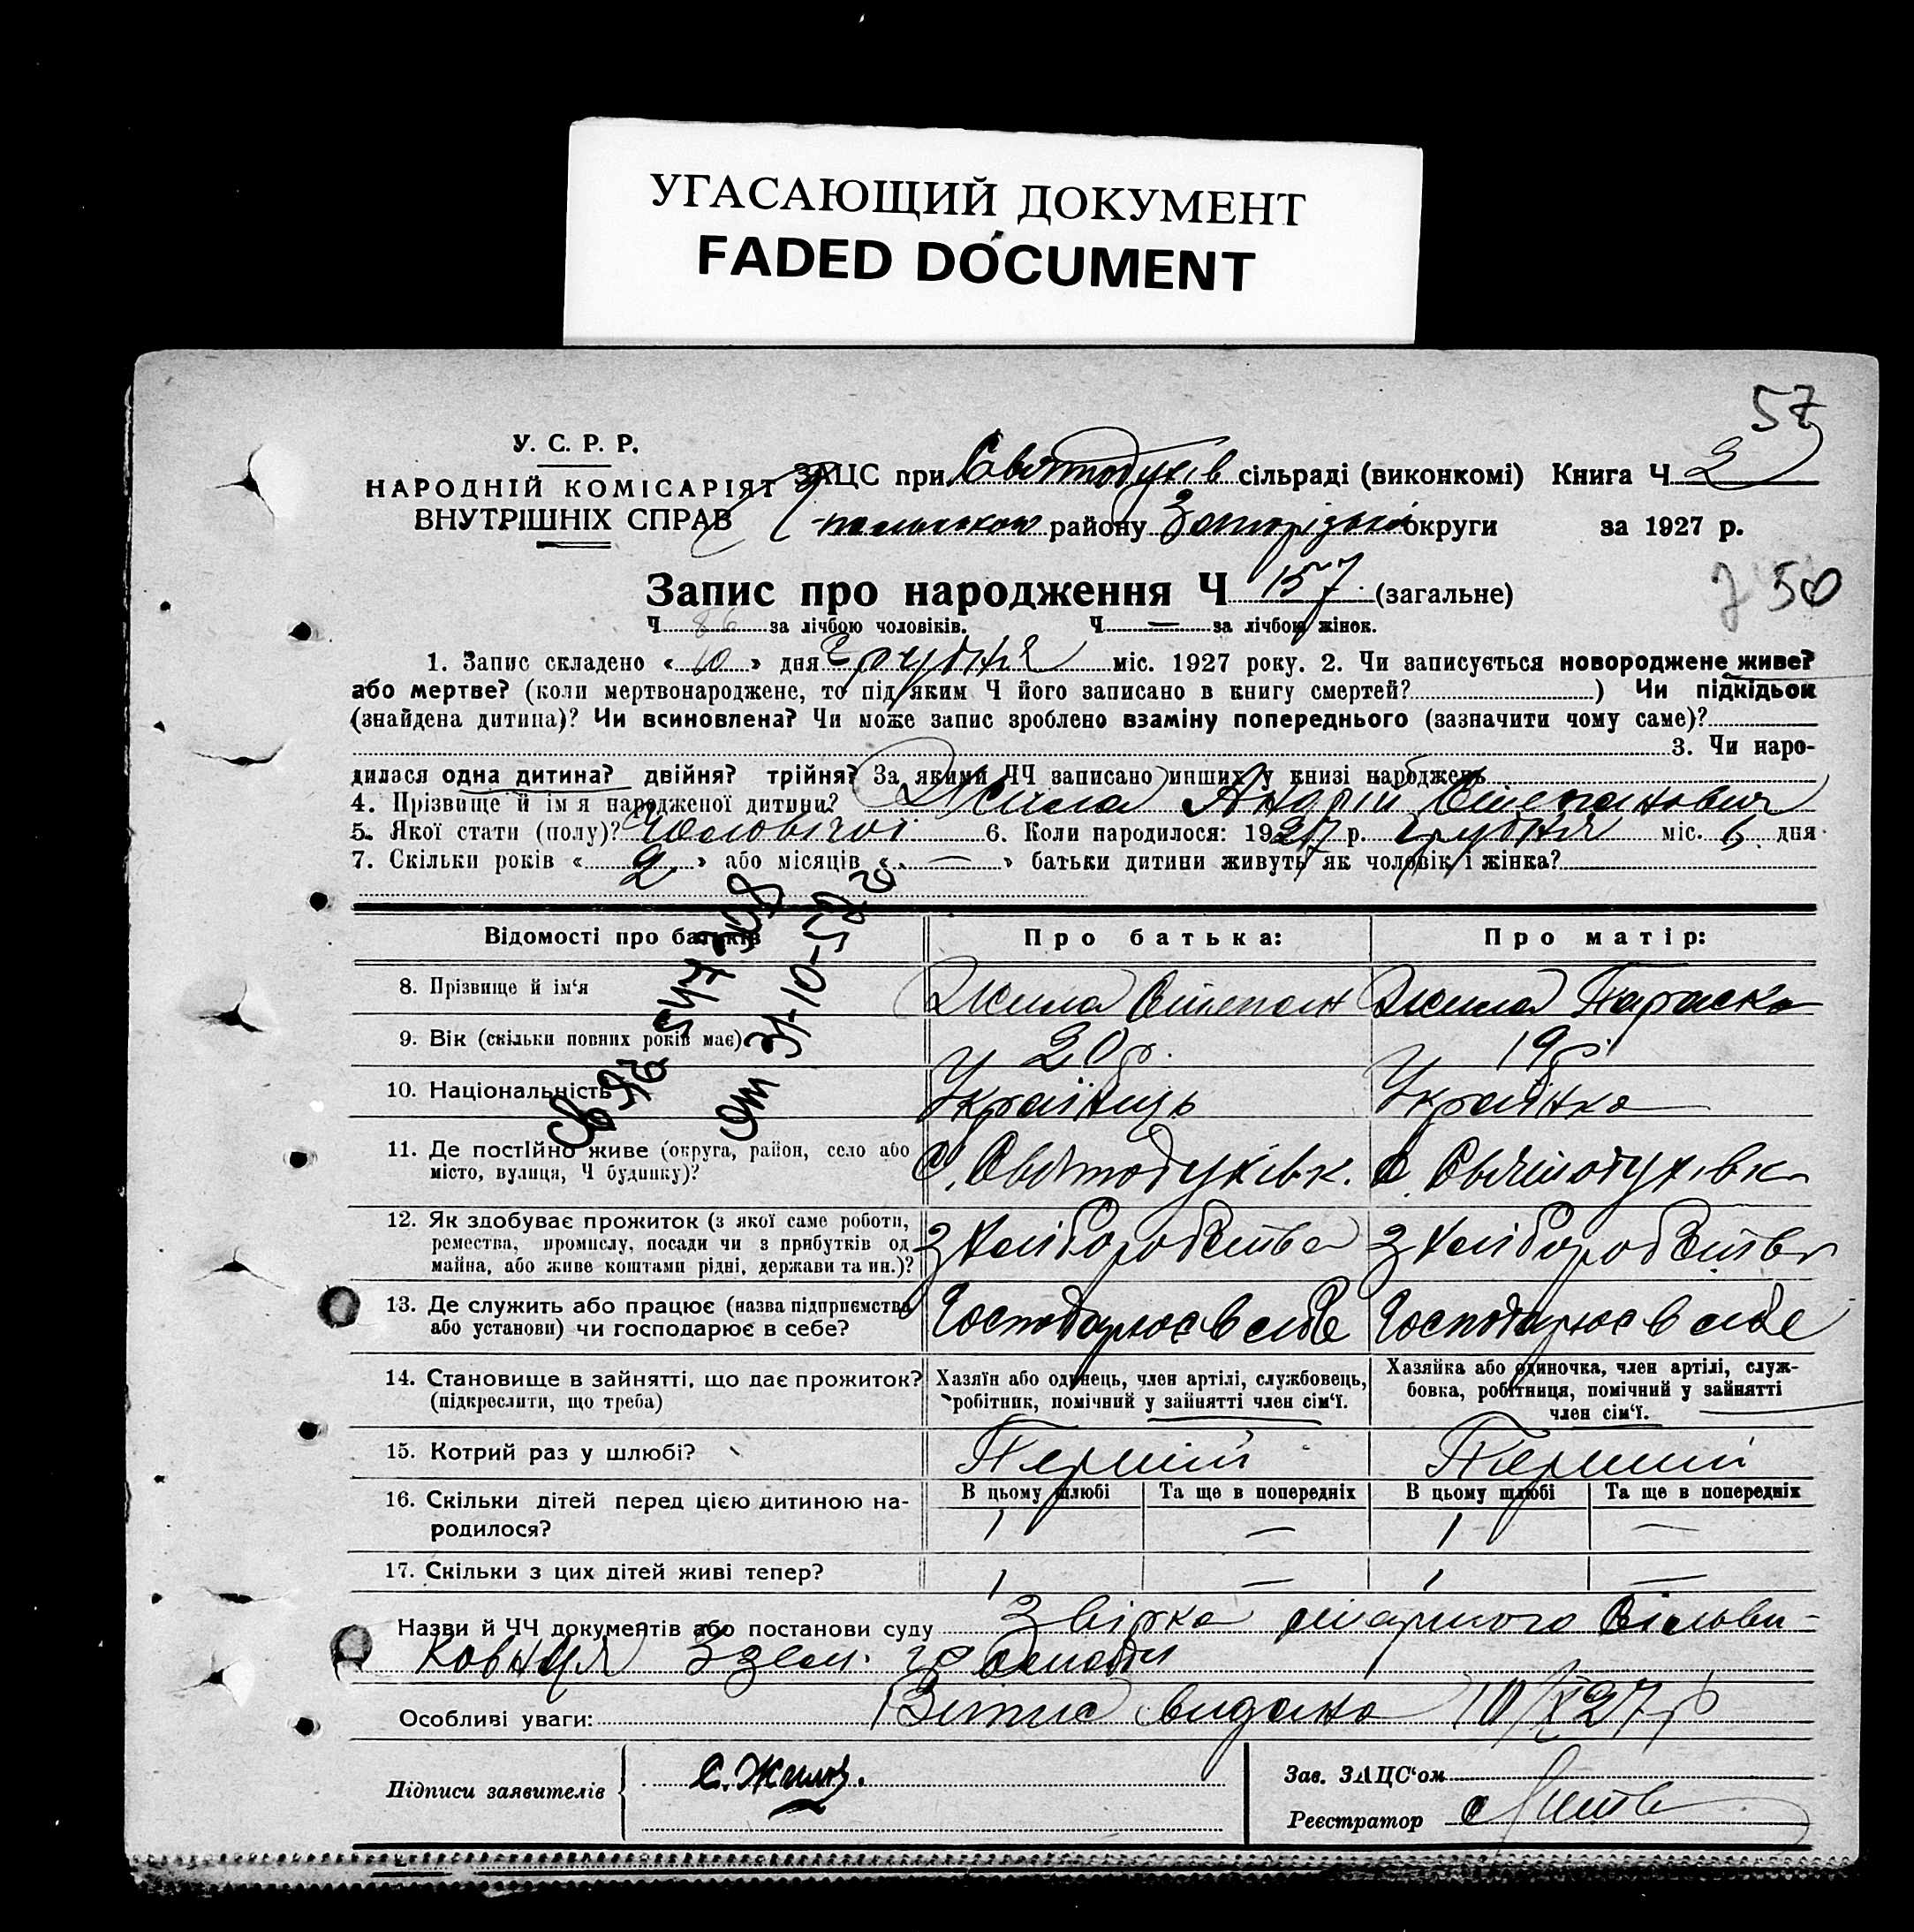 УГАСАЮЩИЙ ДОКУМЕНТ
FADED DOCUMENT
57
У. С. Р. Р.
НАРОДНІЙ КОМІСАРІЯТ
ВНУТРІШНІХ СПРАВ
ЗАЦС при Святодухів сільраді (виконкомі) Книга Ч 2
району Запорізької округи за 1927 р.
Запис про народження Ч 157 (загальне)
50
Ч 86 за лічбою чоловіків. Ч — за лічбою жінок.
1. Запис складено « 10 » дня Грудня міс. 1927 року. 2. Чи записується новороджене живе?
або мертве? (коли мертвонароджене, то під яким Ч його записано в книгу смертей? ) Чи підкідьок
(знайдена дитина)? Чи всиновлена? Чи може запис зроблено взаміну попереднього (зазначити чому саме)?
3. Чи наро-
дилася одна дитина? двійня? трійня? За якими ЧЧ записано инших у книзі народжень
4. Прізвище й ім'я народженої дитини? Жила Андрій Степанович
5. Якої стати (полу)? Чоловічої 6. Коли народилося: 1927 р. Грудня міс. 6 дня
7. Скільки років « 2 » або місяців « — » батьки дитини живуть як чоловік і жінка?
Св ЯБ 547308
от 31-10-52 г
Відомості про батьків Про батька: Про матір:
8. Прізвище й ім'я Жила Степан Жила Параска
9. Вік (скільки повних років має) 20 р. 19 р.
10. Національність Українець Українка
11. Де постійно живе (округа, район, село або
місто, вулиця, Ч будинку)? С. Святодухівк. С. Святодухівка
12. Як здобуває прожиток (з якої саме роботи,
ремества, промислу, посади чи з прибутків од
майна, або живе коштами рідні, держави та ин.)? З хліборобства З хліборобства
13. Де служить або працює (назва підприємства
або установи) чи господарює в себе? Господарює в себе Господарює в себе
14. Становище в зайнятті, що дає прожиток?
(підкреслити, що треба)
Хазяїн або одинець, член артілі, службовець,
робітник, помічний у зайнятті член сім'ї.
Хазяйка або одиночка, член артілі, служ-
бовка, робітниця, помічний у зайнятті
член сім'ї.
15. Котрий раз у шлюбі? Перший Перший
16. Скільки дітей перед цією дитиною на-
родилося?
В цьому шлюбі Та ще в попередніх В цьому шлюбі Та ще в попередніх
1 — 1 —
17. Скільки з цих дітей живі тепер? 1 — 1 —
Назви й ЧЧ документів або постанови суду Звірка
Особливі уваги: видано
Підписи заявителів С. Жила.
Зав. ЗАЦС'ом
Реєстратор